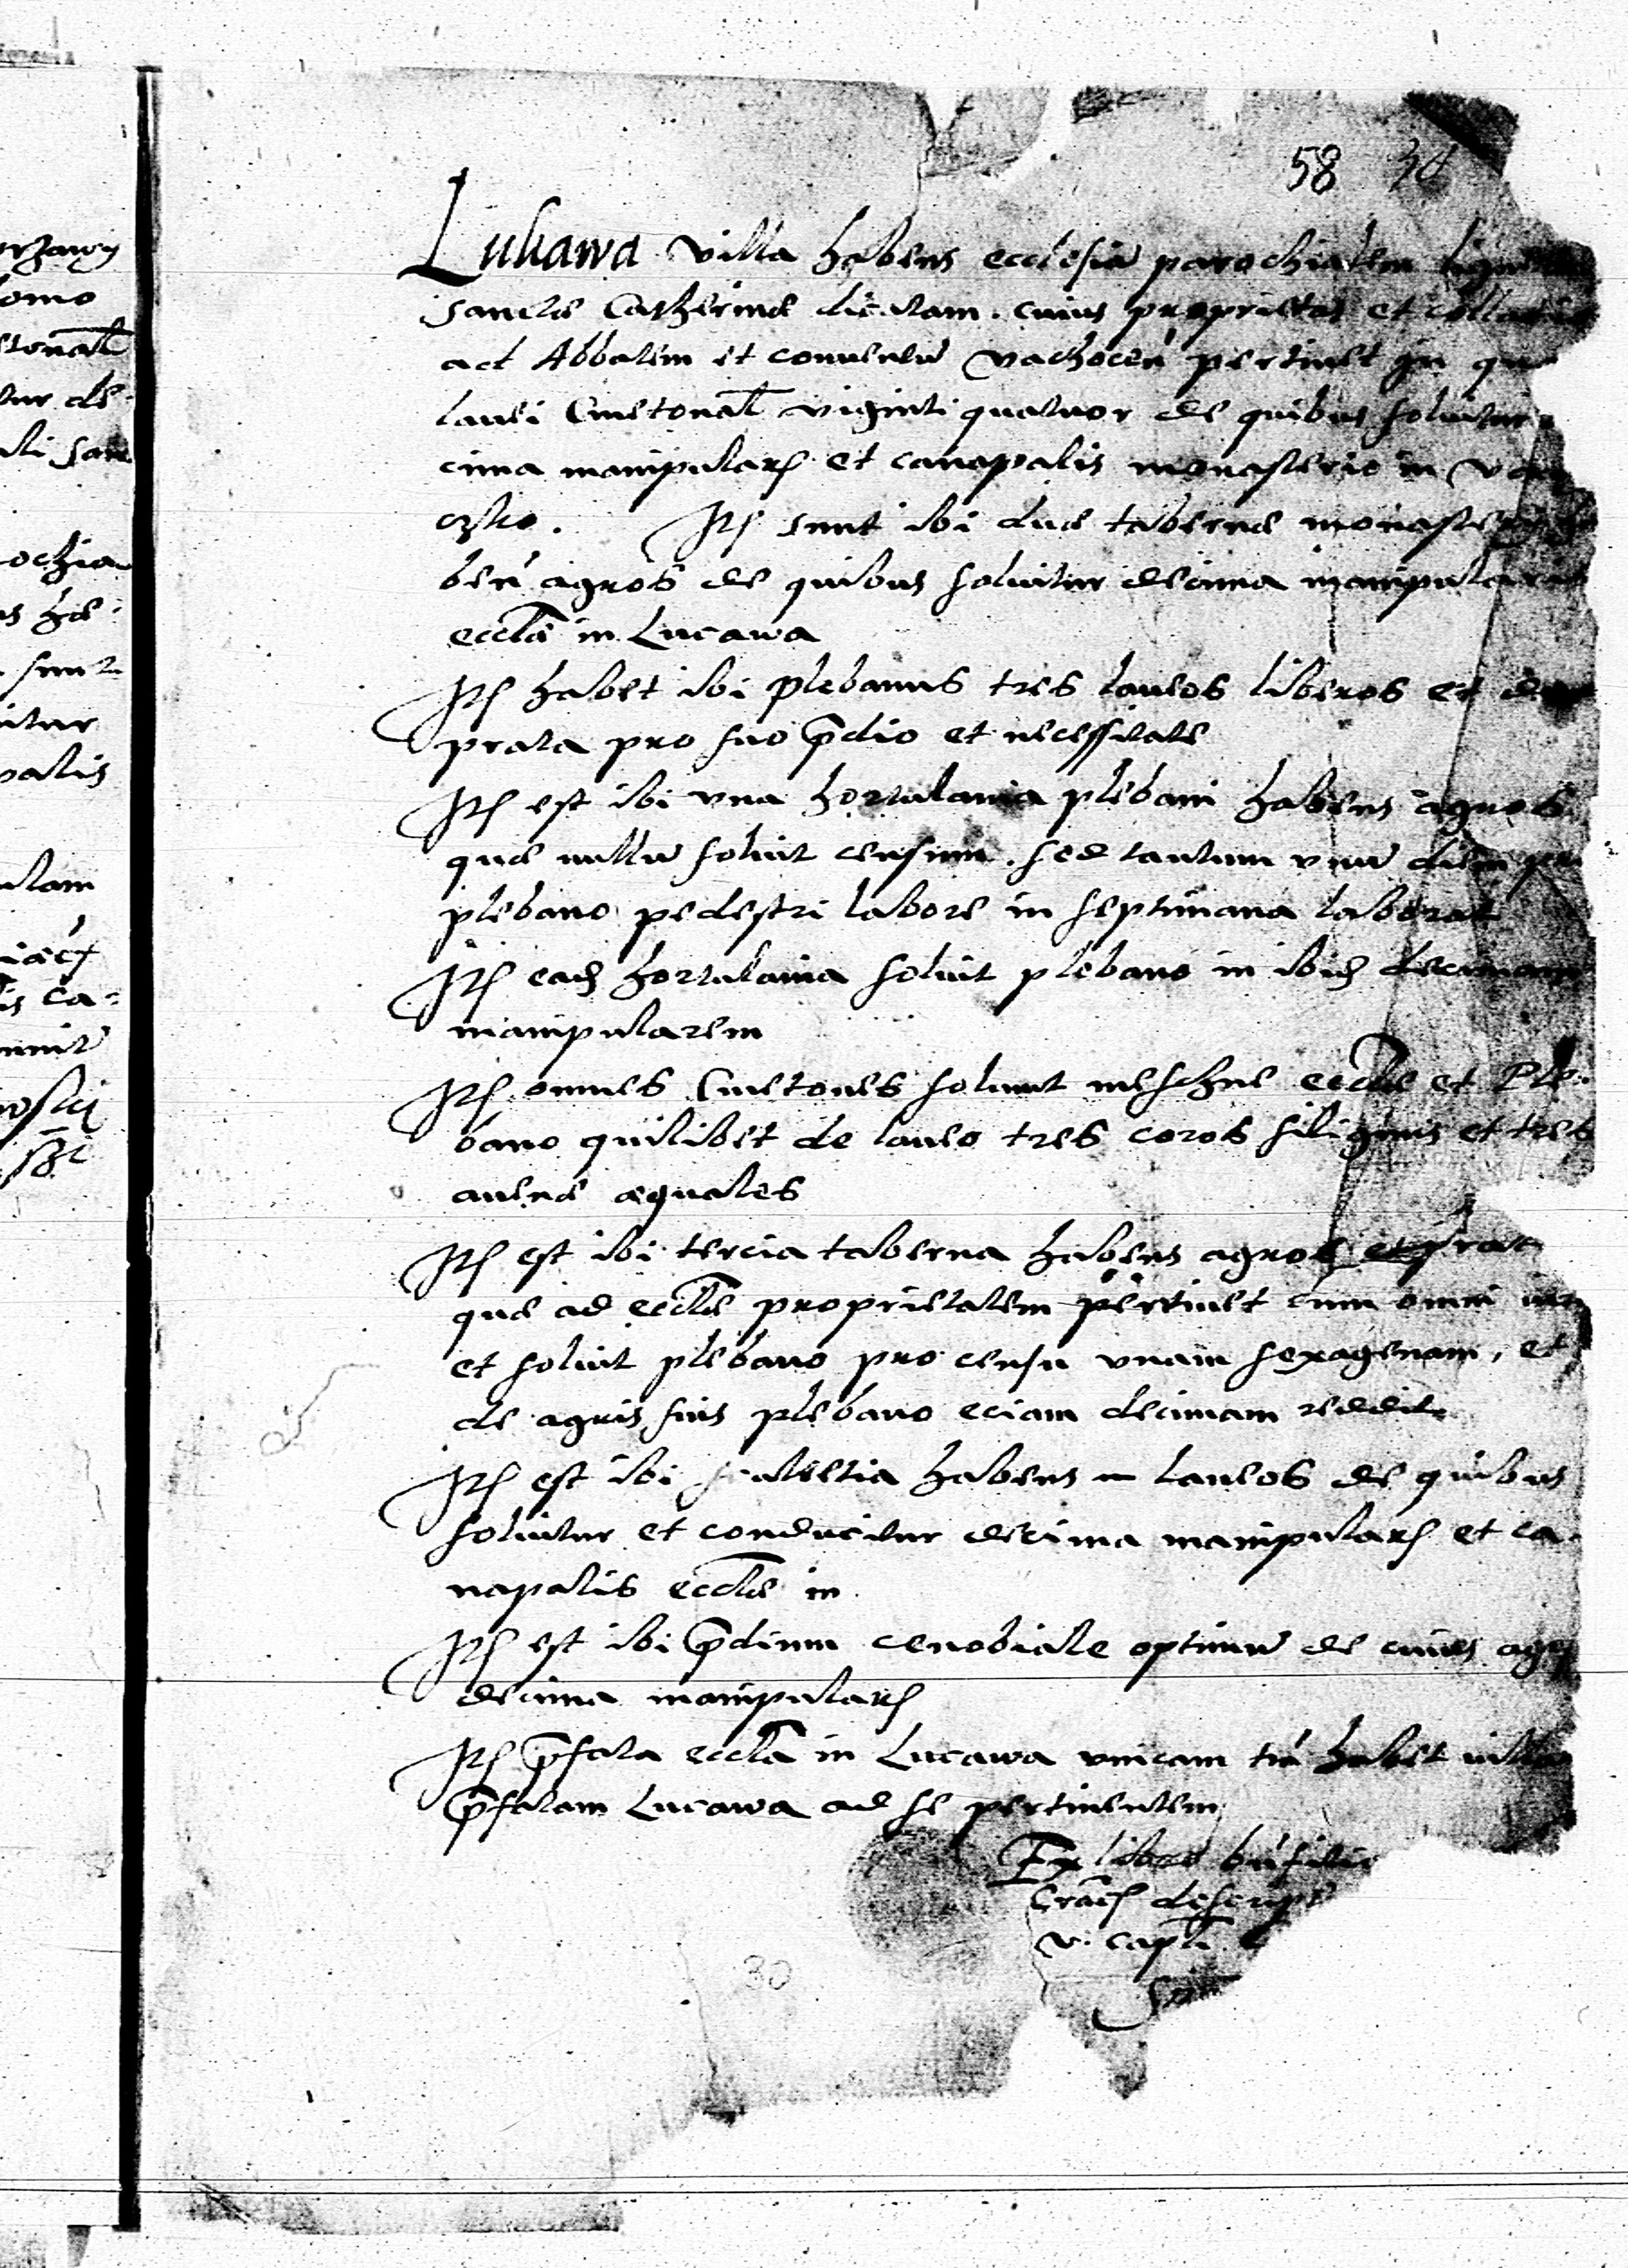 58 30
Lukawa villa habens ecclesiã parochialem ligne
Sanctæ Catherinæ dicatam. cuius proprietas et collatio
ad Abbatem et conuentũ Vachoceñ pertinet In qu
lanei Cmetonal̃ viginti quatuor de quibus soluitur
cima manipular̃ et canapalis monasterio in Va
czko. Itȝ sunt ibi duæ tabernæ monaste
beñ agros de quibus soluitur decima manipularis
eccl̃æ in Lucawa
Itȝ habet ibi plebanus tres laneos liberos et
prata pro suo p̃dio et necessitate
Itȝ est ibi vna hortulania plebani habens agros
quæ nullũ soluit censum. sed tantum vnũ diem
plebano pedestri labore in septimana laborat
Itȝ eadȝ hortulania soluit plebano in ibidȝ decimam
manipularem
Itȝ omnes Cmetones soluunt meschne eccl̃æ et Ple-
bano quilibet de laneo tres coros siliginis et tres
auenæ æquales
Itȝ est ibi tercia taberna habens agros et prat
quæ ad eccl̃æ proprietatem pertinet cum omni
et soluit plebano pro censu vnam sexagenam, et
de agris suis plebano eciam decimam reddit
Itȝ est ibi scultetia habens laneos de quibus
soluitur et conducitur decima manipular̃ et ca-
napalis eccl̃æ in
Itȝ est ibi p̃dium cenobiale optimũ de cuius
decima manipular̃
Itȝ p̃fata eccl̃a in Lucawa vnicam tm̃ habet
p̃fatam Lucawa ad se pertinentem
Ex libro
descrip
v. capl̃i
30
domo
etonal̃
tur de-
ochia
itur
palis